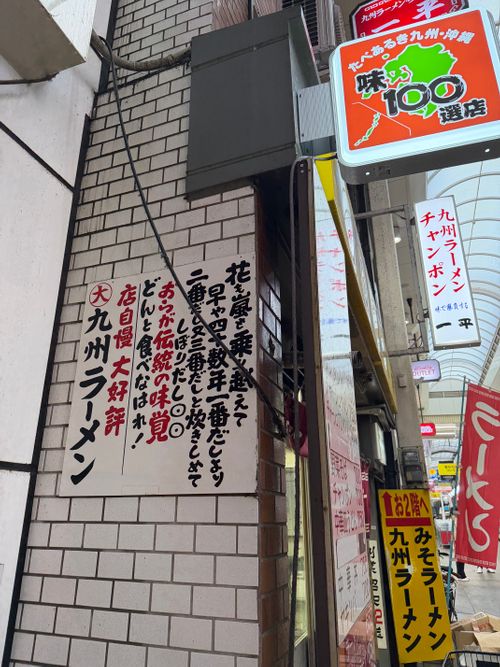 九州ラーメン 一平
たべあるき九州・沖縄
味の100選店
九州ラーメン
チャンポン
味で勝負する
一平
花も嵐も乗り越えて
早や四十数年一番だしより
二番だし三番だしと炊きしめて
しぼりだし〇〇
おらが伝統の味覚
どんと食べなはれ!
店自慢 大好評
大 九州ラーメン
OUTLET
ラーメン
お2階へ
みそラーメン
九州ラーメン